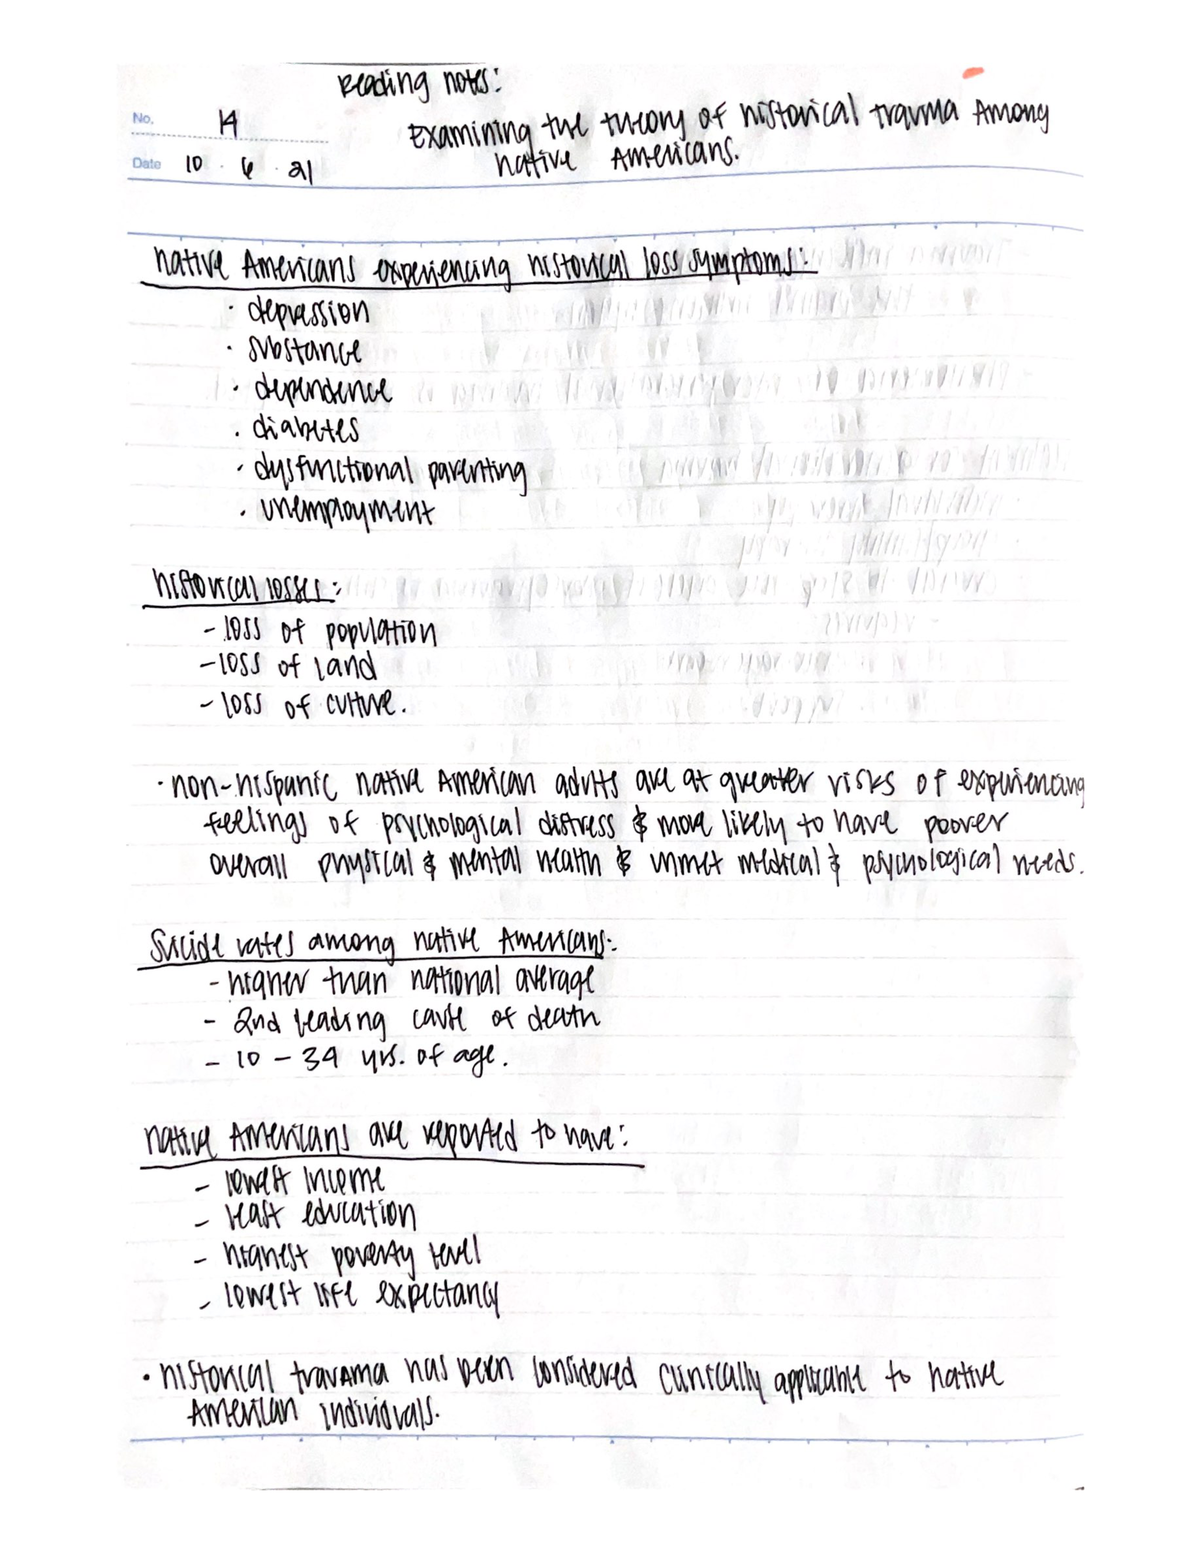 Reading notes:
No. 14
Examining the theory of historical trauma Among
Date 10 . 6 . 21
native Americans.
native Americans experiencing historical loss symptoms:
· depression
· substance
· dependence
· diabetes
· dysfunctional parenting
· unemployment
historical losses:
- loss of population
- loss of land
- loss of culture.
· non-hispanic native American adults are at greater risks of experiencing
feelings of psychological distress & more likely to have poorer
overall physical & mental health & unmet medical & psychological needs.
Suicide rates among native Americans:
- higher than national average
- 2nd leading cause of death
- 10 - 34 yrs. of age.
native Americans are reported to have:
- lowest income
- least education
- highest poverty level
- lowest life expectancy
· historical travama has been considered clinically applicable to native
American individuals.